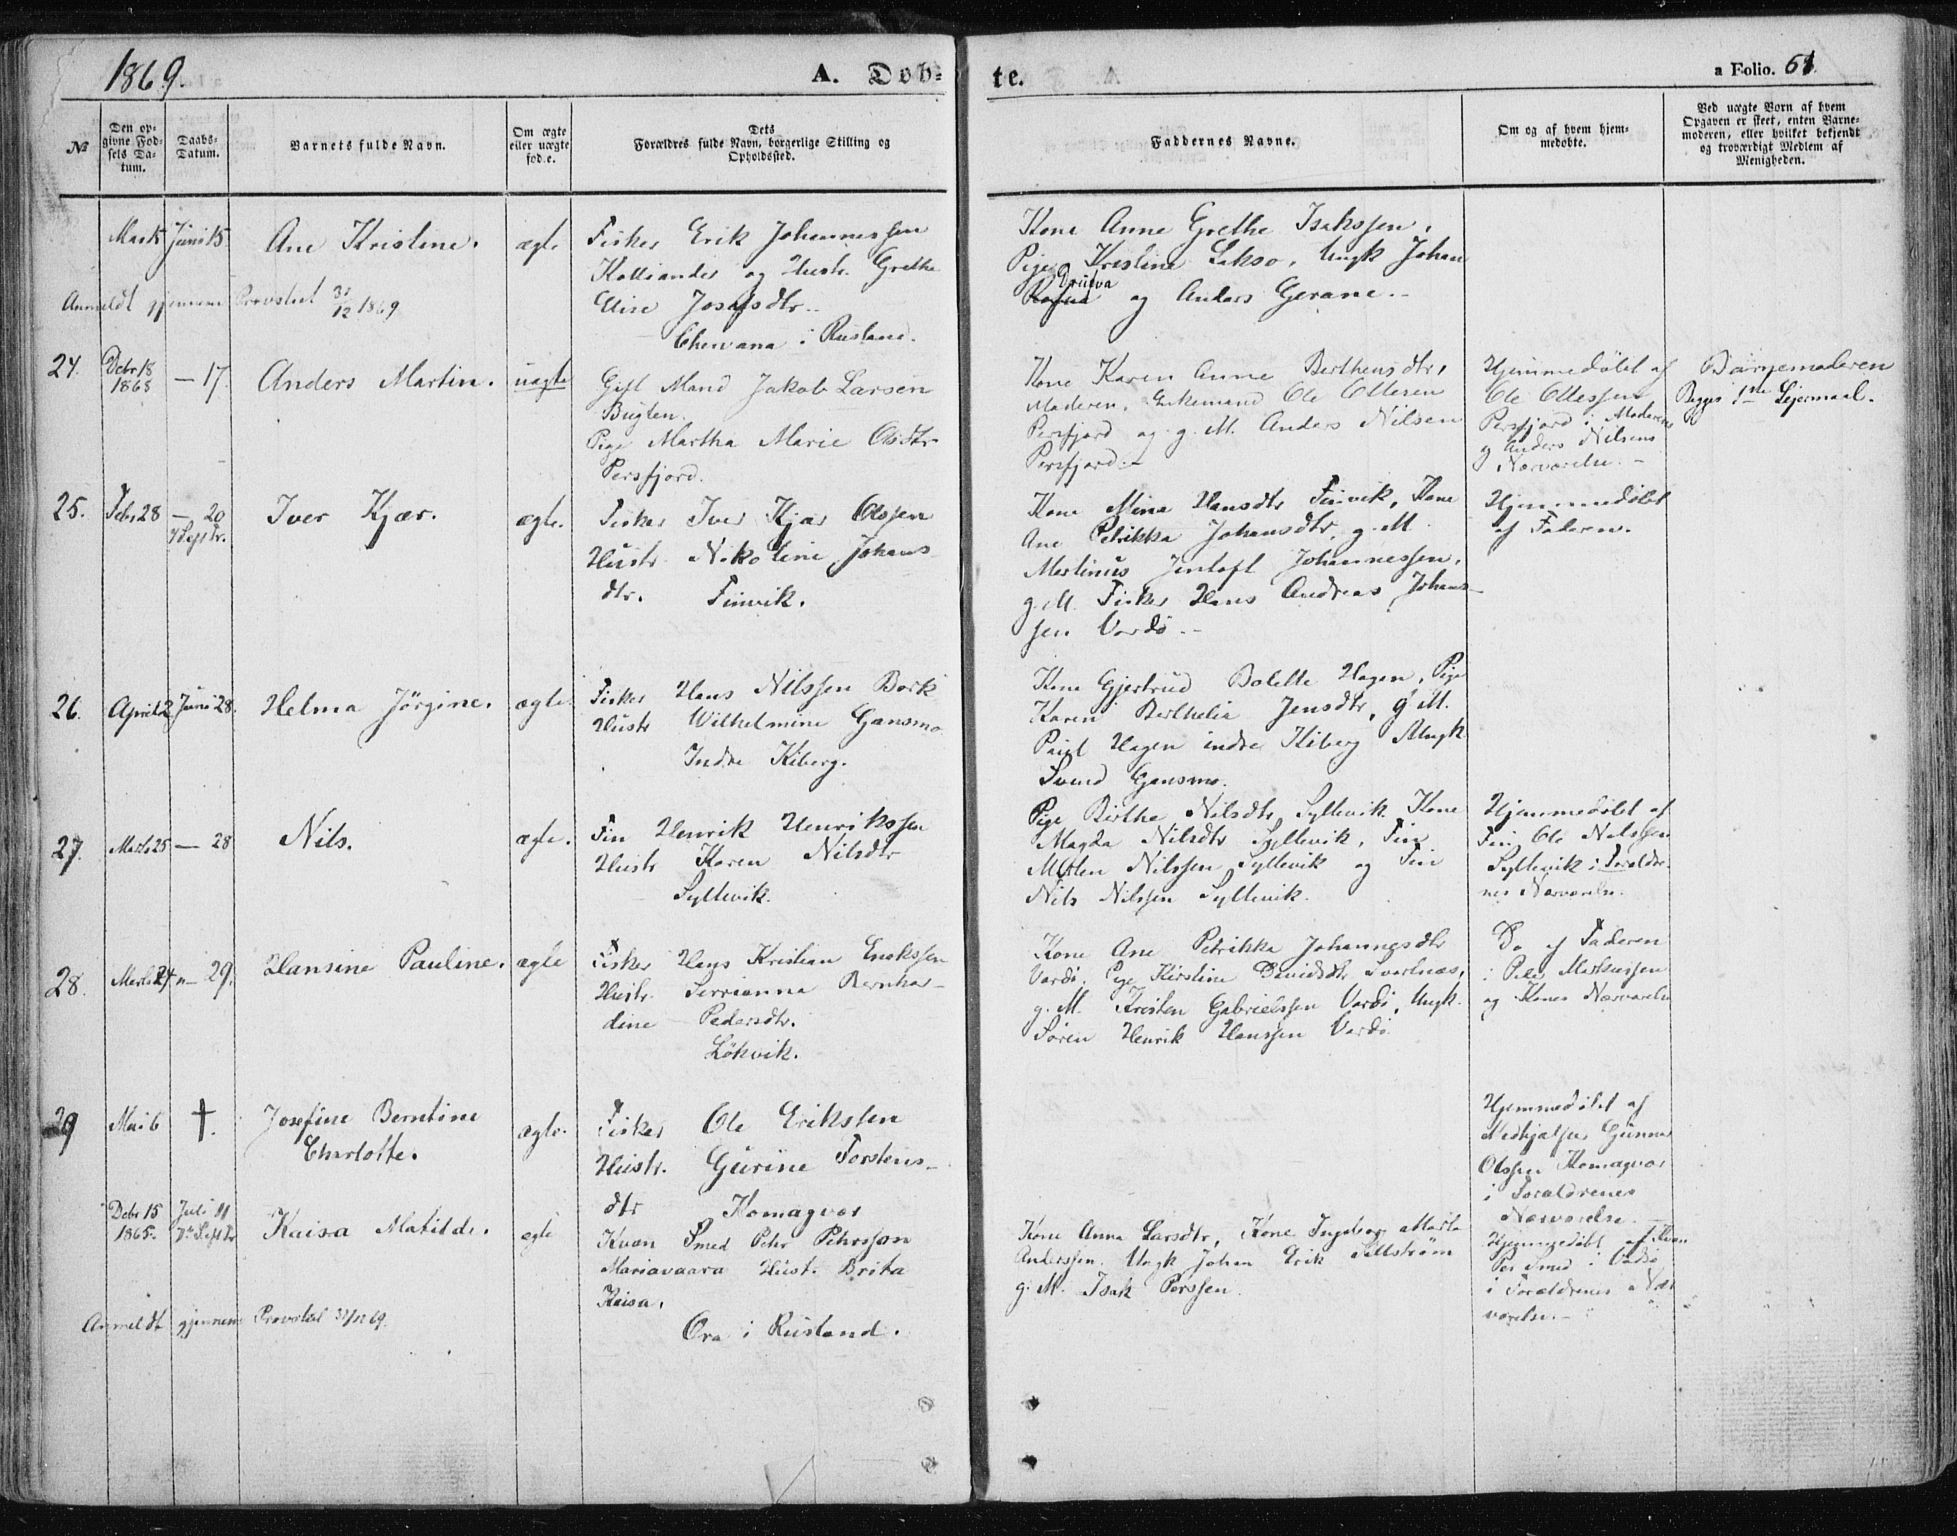 1869.
A. Døb-
te.
a Folio. 61.
№
Den op-
givne Fød-
sels Da-
tum.
Daabs-
Datum.
Barnets fulde Navn.
Om ægte
eller uægte
fød.e.
Dets
Forældres fulde Navn, borgerlige Stilling og
Opholdssted.
Faddernes Navne.
Om og af hvem hjem-
medøbte.
Ved uægte Børn af hvem
Opgaven er skeet, enten Barne-
moderen, eller hvilket bekjendt
og troværdigt Medlem af
Menigheden.
Juni 15
Ane Kristine.
ægte
Fisker Erik Johannessen
og Hustr. Grethe
Josefsdtr.
i Rusland.
Anmeldt gjennem Provstiet 31/12 1869
Kone Anne Grethe Isakssen,
Pige Kristine Lakso, Ungk Johan
og Anders Gerane.
24.
Debr 18
1868
— 17.
Anders Martin.
uægte
Gift Mand Jakob Larsen
Bugten.
Pige Martha Marie Olsdtr
Persfjord.
Kone Karen Anne Berthensdtr,
Moderen, Enkemand Ole Ollesen
Persfjord og g. M. Anders Nilsen
Persfjord.
Hjemmedøbt af
Ole Ollessen
Persfjord i Moderens
og Anders Nilsens
Nærværelse. —
Barnemoderen
Begges 1ste Lejermaal.
25.
Febr 28
— 20
7 Septr.
Iver Kjær.
ægte.
Fisker Iver Kjær Olssen
Hustr Nikoline Johans-
dtr. Finvik.
Kone Mina Hansdtr Finvik, Kone
Ane Petrikka Johansdtr, g. M.
Martinus Jentoft Johannessen,
g. M. Fisker Hans Andreas Johans-
sen Vardø. —
Hjemmedøbt
af Faderen.
26.
April 2
Juni 28.
Helma Jörgine.
ægte
Fisker Hans Nilssen Bork
Hustr Wilhelmine Gansmo
Indre Kiberg.
Kone Gjertrud Bolette Hagen, Pige
Karen Berthelia Jensdtr, g. M.
Paul Hagen indre Kiberg Ungk
Svend Gansmo.
27.
Marts 25
— 28
Nils.
ægte.
Fin Henrik Henrikssen
Hustr Karen Nilsdtr
Syltevik.
Pige Birthe Nilsdtr Syltevik. Kone
Magda Nilsdtr Syltevik, Fin
Morten Nilssen Syltevik og Fin
Nils Nilssen Syltevik.
Hjemmedøbt af
Fin Ole Nilssen
Syltevik i Foreldre-
nes Nærværelse.
28.
Marts 24
— 29.
Hansine Pauline.
ægte
Fisker Hans Kristian Enokssen
Hustr. Serrianna Bernhar-
dine Pedersdtr.
Løkvik.
Kone Ane Petrikka Johannesdtr
Vardø, Pige Kirstine Davidsdtr Svartnæs,
g. M. Kristen Gabrielssen Vardø, Ungk.
Søren Henrik Hanssen Vardø
Do af Faderen
i Peder Markussen
og Kones Nærværelse
29
Mai 6
†.
Josefine Berntine
Charlotte.
ægte.
Fisker Ole Erikssen
Hustr. Gurine Torstens-
dtr Komagvær
Hjemmedøbt af
Medhjælper Gunner
Olssen Komagvær
i Forældrenes
Nærværelse
Debr 15
1865.
Juli 11
7de Septbr
Kaisa Matilde.
ægte
Kvæn Smed Petr Pehrsson
Mariavaara Hust. Brita
Kaisa,
Ora i Rusland.
Kone Anna Larsdtr, Kone Ingeborg Marta
Anderssen. Ungk Johan Erik Sellström
g. M. Isak Perssen.
Hjemmedøbt af Kvæn
Per Smed i Vadsø
i Forældrenes Nær-
værelse. —
Anmeldt gjennem Provstiet 31/12 69.